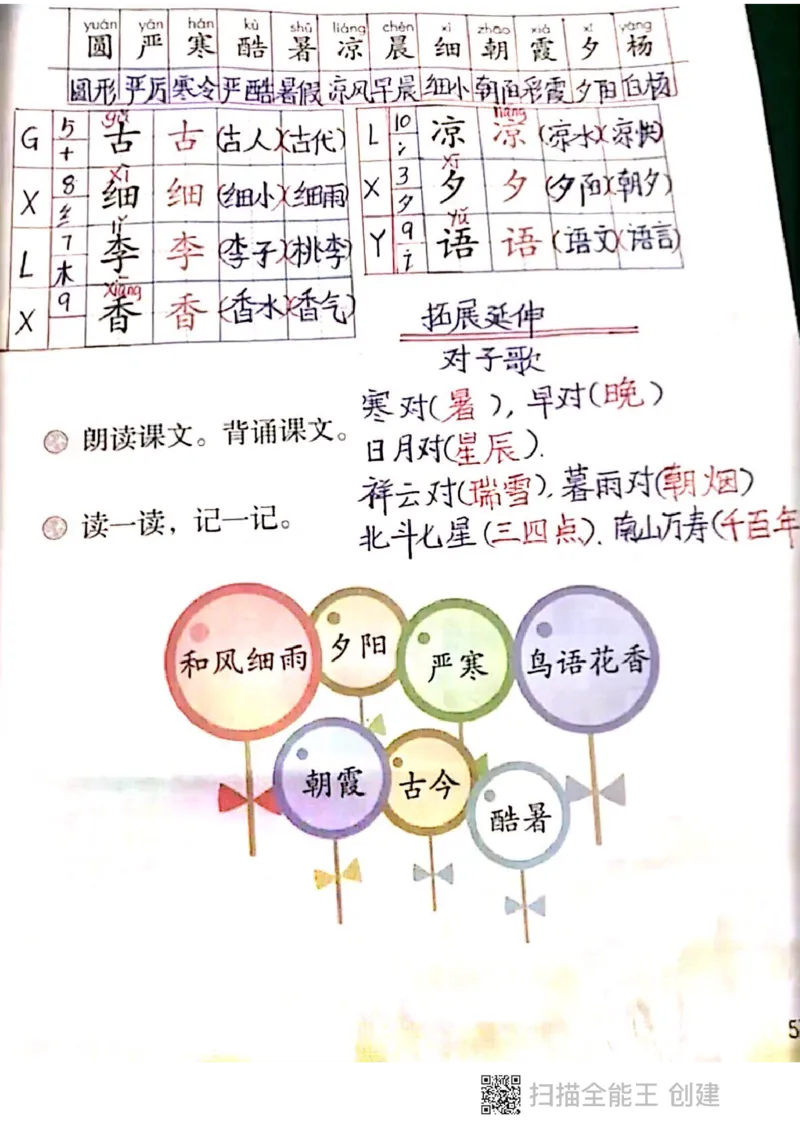 yuán yán hán kù shǔ liáng chén xì zhāo xiá xī yáng
圆 严 寒 酷 暑 凉 晨 细 朝 霞 夕 杨
圆形 严厉 寒冷 严酷 暑假 凉风 早晨 细小 朝阳 彩霞 夕阳 白杨
G 5 十 gǔ 古 古 (古人)(古代)
X 8 纟 xì 细 细 (细小)(细雨)
L 7 木 lǐ 李 李 (李子)(桃李)
X 9 xiāng 香 香 (香水)(香气)
L 10 冫 liáng 凉 凉 (凉水)(凉快)
X 3 夕 xī 夕 夕 (夕阳)(朝夕)
Y 9 讠 yǔ 语 语 (语文)(语言)
拓展延伸
对子歌
寒对(暑),早对(晚)
日月对(星辰).
祥云对(瑞雪),暮雨对(朝烟)
北斗七星(三四点).南山万寿(千百年
朗读课文。背诵课文。
读一读,记一记。
和风细雨
夕阳
严寒
鸟语花香
朝霞
古今
酷暑
扫描全能王 创建